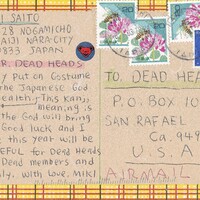 I SAITO
28 NOGAMICHO
A631 NARA-CITY
0833 JAPAN
R. DEAD HEADS.
Y PUT ON COSTUME
THE JAPANESE GOD
EALTH. THIS KAN,
MEANING IS
THE GOD WILL BRING
GOOD LUCK AND I
THIS YEAR WILL BE
CEFUL FOR DEAD HEADS
DEAD MEMBERS AND
LY, WITH LOVE. MIKI
TO. DEAD HEAD
P.O. BOX 10
SAN RAFAEL
CA. 949
U.S.A
AIRMAIL